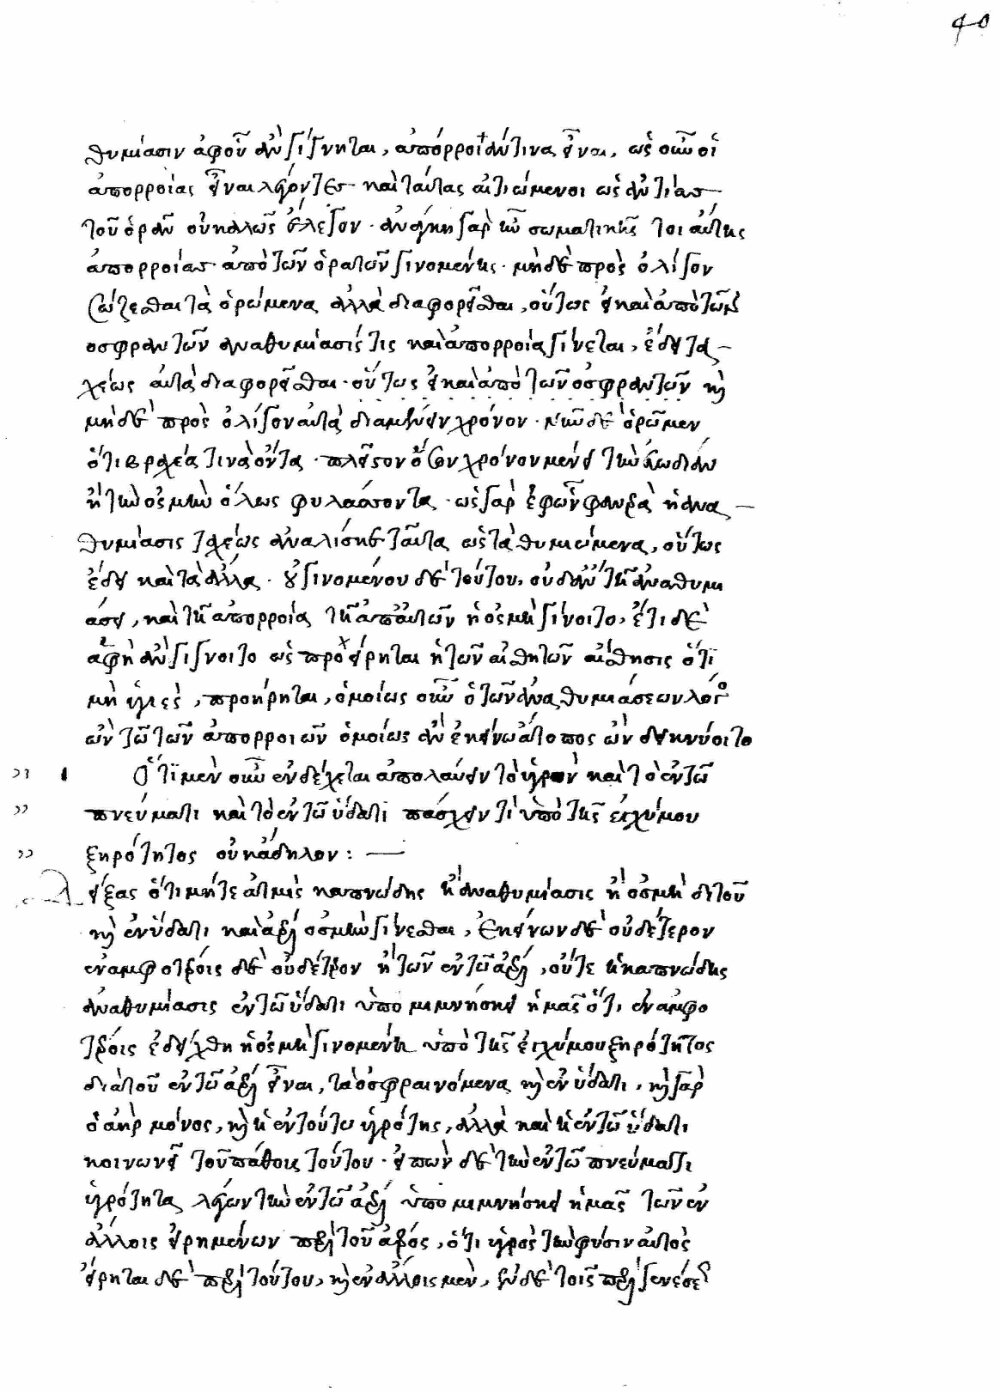 40
θυμίασιν ἀφ' οὗ ἂν γίγνηται, ἀπόρροιάν τινα εἶναι, ὡς οὖν οἱ
ἀπορροίας εἶναι λέγοντες καὶ ταύτας αἰτιώμενοι ὡς αἰτίας
τοῦ ὁρᾶν οὐ καλῶς ἔλεγον· ἀνάγκη γὰρ ἦν σωματικῆς τοιαύτης
ἀπορροίας ἀπὸ τῶν ὁρατῶν γινομένης· μηδὲ πρὸς ὀλίγον
σώζεσθαι τὰ ὁρώμενα ἀλλὰ διαφορεῖσθαι, οὕτως εἰ καὶ ἀπὸ τῶν
ὀσφραντῶν ἀναθυμίασίς τις καὶ ἀπόρροια γίνεται, ἔδει τα
χέως αὐτὰ διαφορεῖσθαι· οὕτως εἰ καὶ ἀπὸ τῶν ὀσφραντῶν καὶ
μηδὲ πρὸς ὀλίγον αὐτὰ διαμένειν χρόνον· νῦν δὲ ὁρῶμεν
ὅτι βραχέα τινὰ ὄντα· πλεῖστον ὅσον χρόνον μένει τὴν εὐωδίαν
ἢ τὴν ὀσμὴν ὅλως φυλάσσοντα· ὡς γὰρ ἐφ' ὧν φανερὰ ἡ ἀνα
θυμίασις ταχέως ἀναλίσκει ταῦτα ὡς τὰ θυμιώμενα, οὕτως
ἔδει καὶ τὰ ἄλλα· οὐ γινομένου δὲ τούτου, οὐδ' ἂν τῇ ἀναθυμι
άσει, καὶ τῇ ἀπορροίᾳ τῇ ἀπ' αὐτῶν ἡ ὀσμὴ γίνοιτο, ἔτι δὲ
ἁφῇ ἂν γίγνοιτο ὡς προείρηται ἡ τῶν αἰσθητῶν αἴσθησις ὅτι
μὴ ὑγιὲς, προηίρηται, ὁμοίως οὖν ὁ τῶν ἀναθυμιάσεων λόγος
ὢν τῷ τῶν ἀπορροιῶν ὁμοίως ἂν ἐκείνῳ ἄτοπος ὢν δεικνύοιτο
Ὅτι μὲν οὖν ἐνδέχεται ἀπολαύειν τὸ ὑγρὸν καὶ τὸ ἐν τῷ
πνεύματι καὶ τὸ ἐν τῷ ὕδατι πάσχειν τι ὑπὸ τῆς ἐγχύμου
ξηρότητος οὐκ ἄδηλον:
Δείξας ὅτι μήτε ἀτμὶς καπνώδης ἢ ἀναθυμίασις ἢ ὀσμὴ διὰ τοῦ
καὶ ἐν ὕδατι καὶ ἀέρι ὀσμὴν γίνεσθαι, ἐκείνων δὲ οὐδέτερον
ἐν ἀμφοτέροις δὲ οὐδέτερον ἢ τῶν ἐν τῷ ἀέρι, οὔτε ἡ καπνώδης
ἀναθυμίασις ἐν τῷ ὕδατι ὑπομιμνήσκει ἡμᾶς ὅτι ἐν ἀμφο
τέροις ἐδείχθη ἡ ὀσμὴ γινομένη ὑπὸ τῆς ἐγχύμου ξηρότητος
διὰ τοῦ ἐν τῷ ἀέρι εἶναι, τὰ ὀσφραινόμενα καὶ ἐν ὕδατι, καὶ γὰρ
ὁ ἀὴρ μόνος, καὶ ἡ ἐν τούτῳ ὑγρότης, ἀλλὰ καὶ ἡ ἐν τῷ ὕδατι
κοινωνεῖ τοῦ πάθους τούτου· εἰπὼν δὲ τὴν ἐν τῷ πνεύματι
ὑγρότητα λέγων τὴν ἐν τῷ ἀέρι ὑπομιμνήσκει ἡμᾶς τῶν ἐν
ἄλλοις εἰρημένων περὶ τοῦ ἀέρος, ὅτι ὑγρὸς τὴν φύσιν αὐτὸς
εἴρηται δὲ περὶ τούτου, καὶ ἐν ἄλλοις μὲν, ἐν δὲ τοῖς περὶ γενέσε